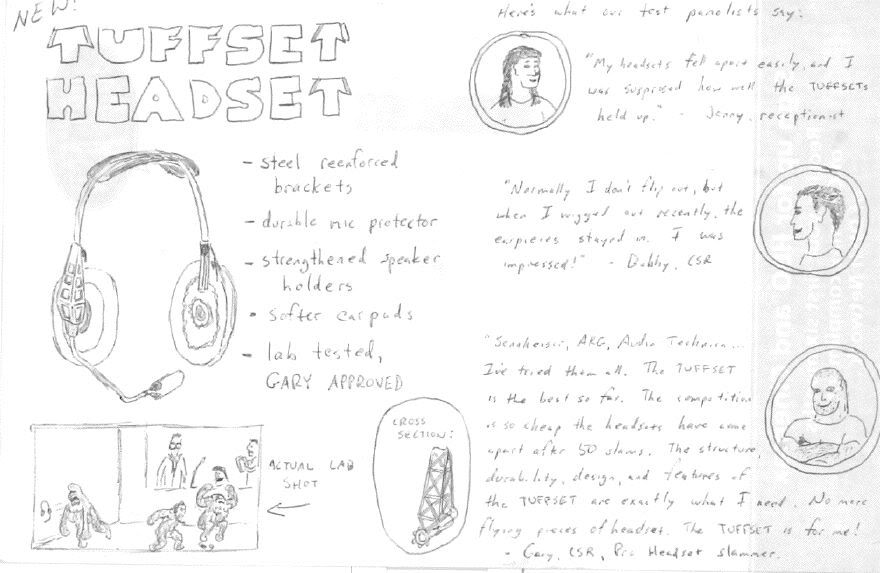 NEW!
TUFFSET
HEADSET
- steel reenforced
brackets
- durable mic protector
- strengthened speaker
holders
- softer earpads
- lab tested,
GARY APPROVED
ACTUAL LAB
SHOT
CROSS
SECTION:
Here's what our test panelists say:
"My headsets fell apart easily, and I
was surprised how well the TUFFSETs
held up." - Jenny, receptionist
"Normally I don't flip out, but
when I wigged out recently, the
earpieces stayed in. I was
impressed!" - Dobby, CSR
"Sennheiser, AKG, Audio Technica...
I've tried them all. The TUFFSET
is the best so far. The competition
is so cheap the headsets have come
apart after 50 slams. The structure,
durability, design, and features of
the TUFFSET are exactly what I need. No more
flying pieces of headset. The TUFFSET is for me!
- Gary, CSR, Pro Headset slammer.